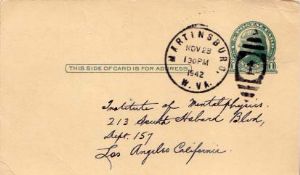 MARTINSBURG,
NOV 28
130PM
1942
W. VA.
THIS SIDE OF CARD IS FOR ADDRESS
Institute of Mentalphysics.
213 South Hobard Blvd,
Dept. 157
Los Angelos California.